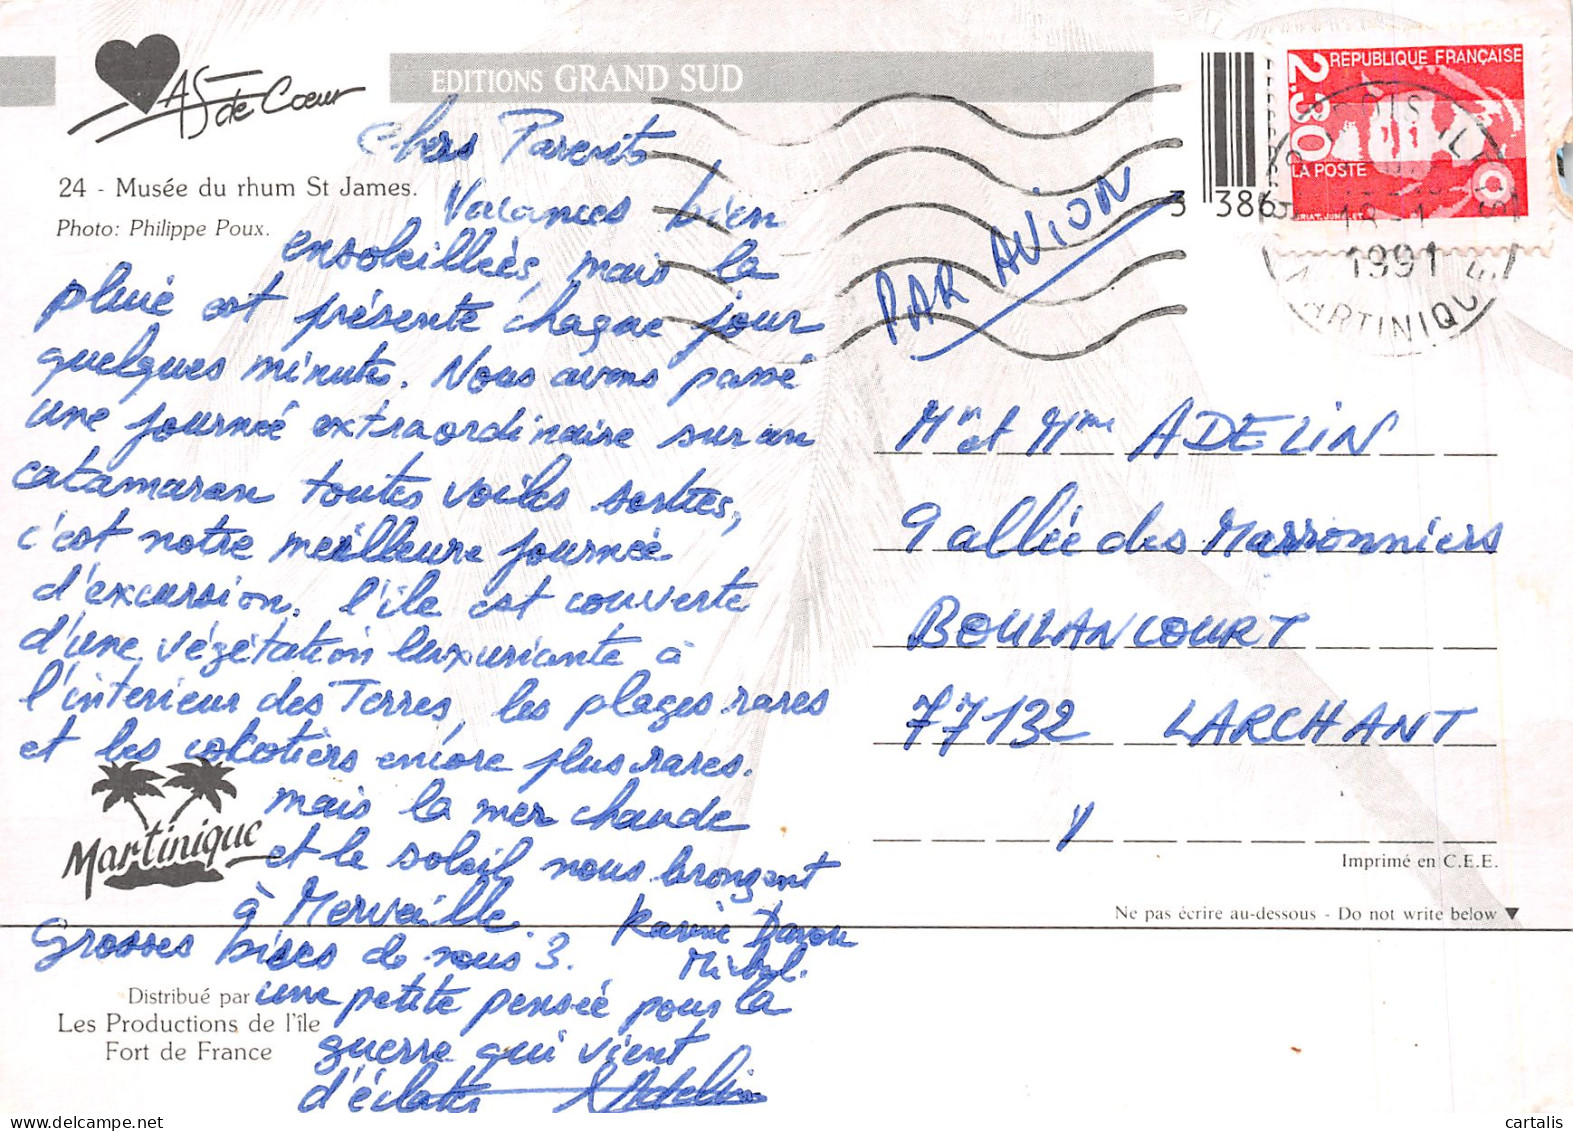 As de Cœur
EDITIONS GRAND SUD
24 - Musée du rhum St James.
Photo: Philippe Poux.
Chers Parents
Vacances bien
ensoleillées, mais la
pluie est présente chaque jour
quelques minutes. Nous avons passé
une journée extraordinaire sur un
catamaran toutes voiles sorties,
c'est notre meilleure journée
d'excursion. l'ile est couverte
d'une végétation luxuriante à
l'interieur des Terres, les plages rares
et les cocotiers encore plus rares.
mais la mer chaude
et le soleil nous bronzent
à Merveille.
Grosses bises de nous 3.
Karine
Michel.
une petite pensée pour la
guerre qui vient
d'éclater
Martinique
Distribué par
Les Productions de l'île
Fort de France
3 386
RÉPUBLIQUE FRANÇAISE
2,30
LA POSTE
18 - 1
1991
MARTINIQUE
PAR AVION
Mr et Mme ADELIN
9 allée des Marronniers
BOULANCOURT
77132 LARCHANT
Imprimé en C.E.E.
Ne pas écrire au-dessous - Do not write below ▼
cartalis | delcampe.net